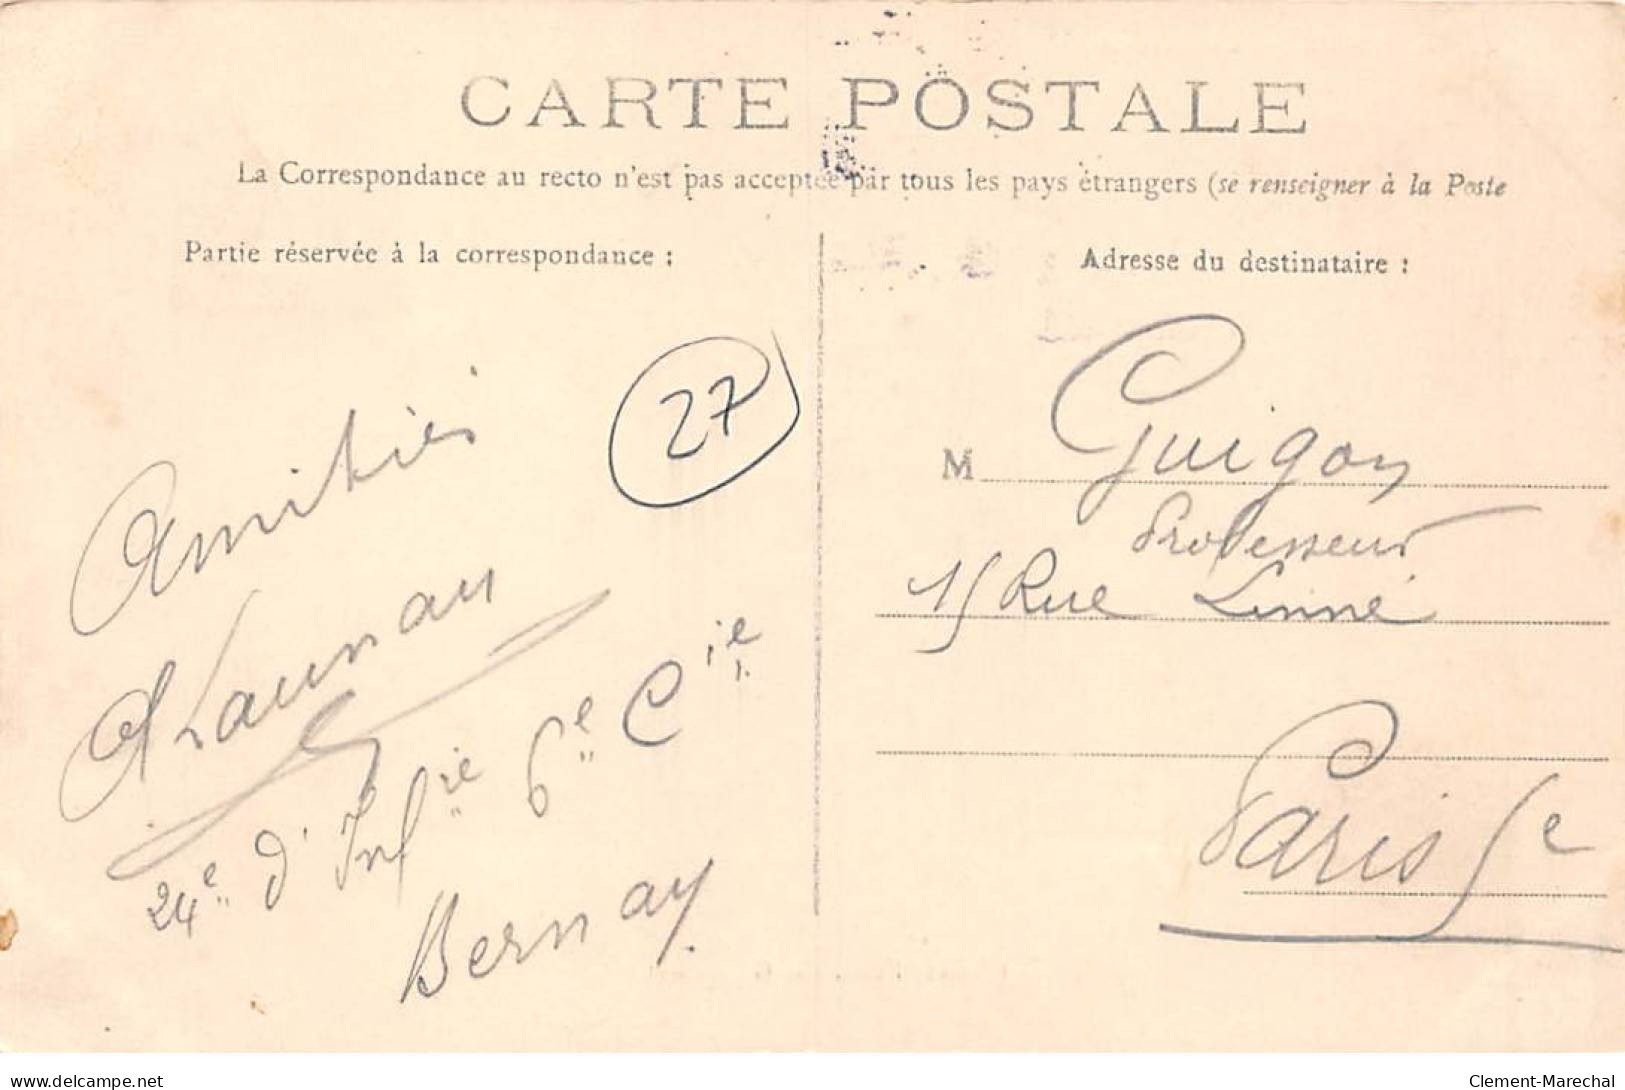 CARTE POSTALE
La Correspondance au recto n'est pas acceptée par tous les pays étrangers (se renseigner à la Poste
Partie réservée à la correspondance :
Adresse du destinataire :
27
Amitiés
Launay
24e d'Infrie 6e Cie
Bernay
M Guigon
Professeur
15 Rue Linné
Paris 5e
www.delcampe.net
Clement-Marechal